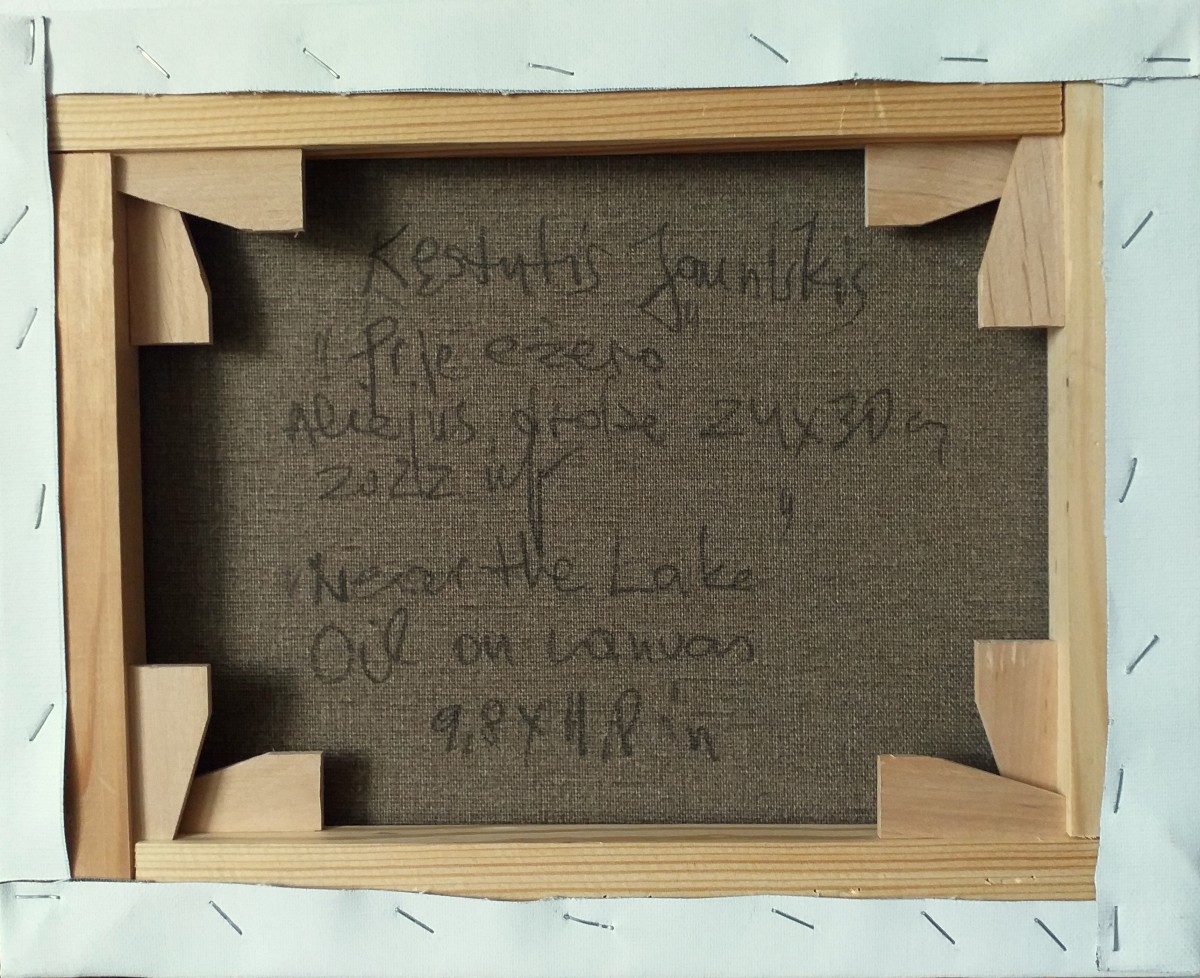 Kęstutis Jauniškis
"Prie ežero"
Aliejus, drobė 24x30 cm
2022
"Near the Lake"
Oil on canvas
9,8x11,8 in